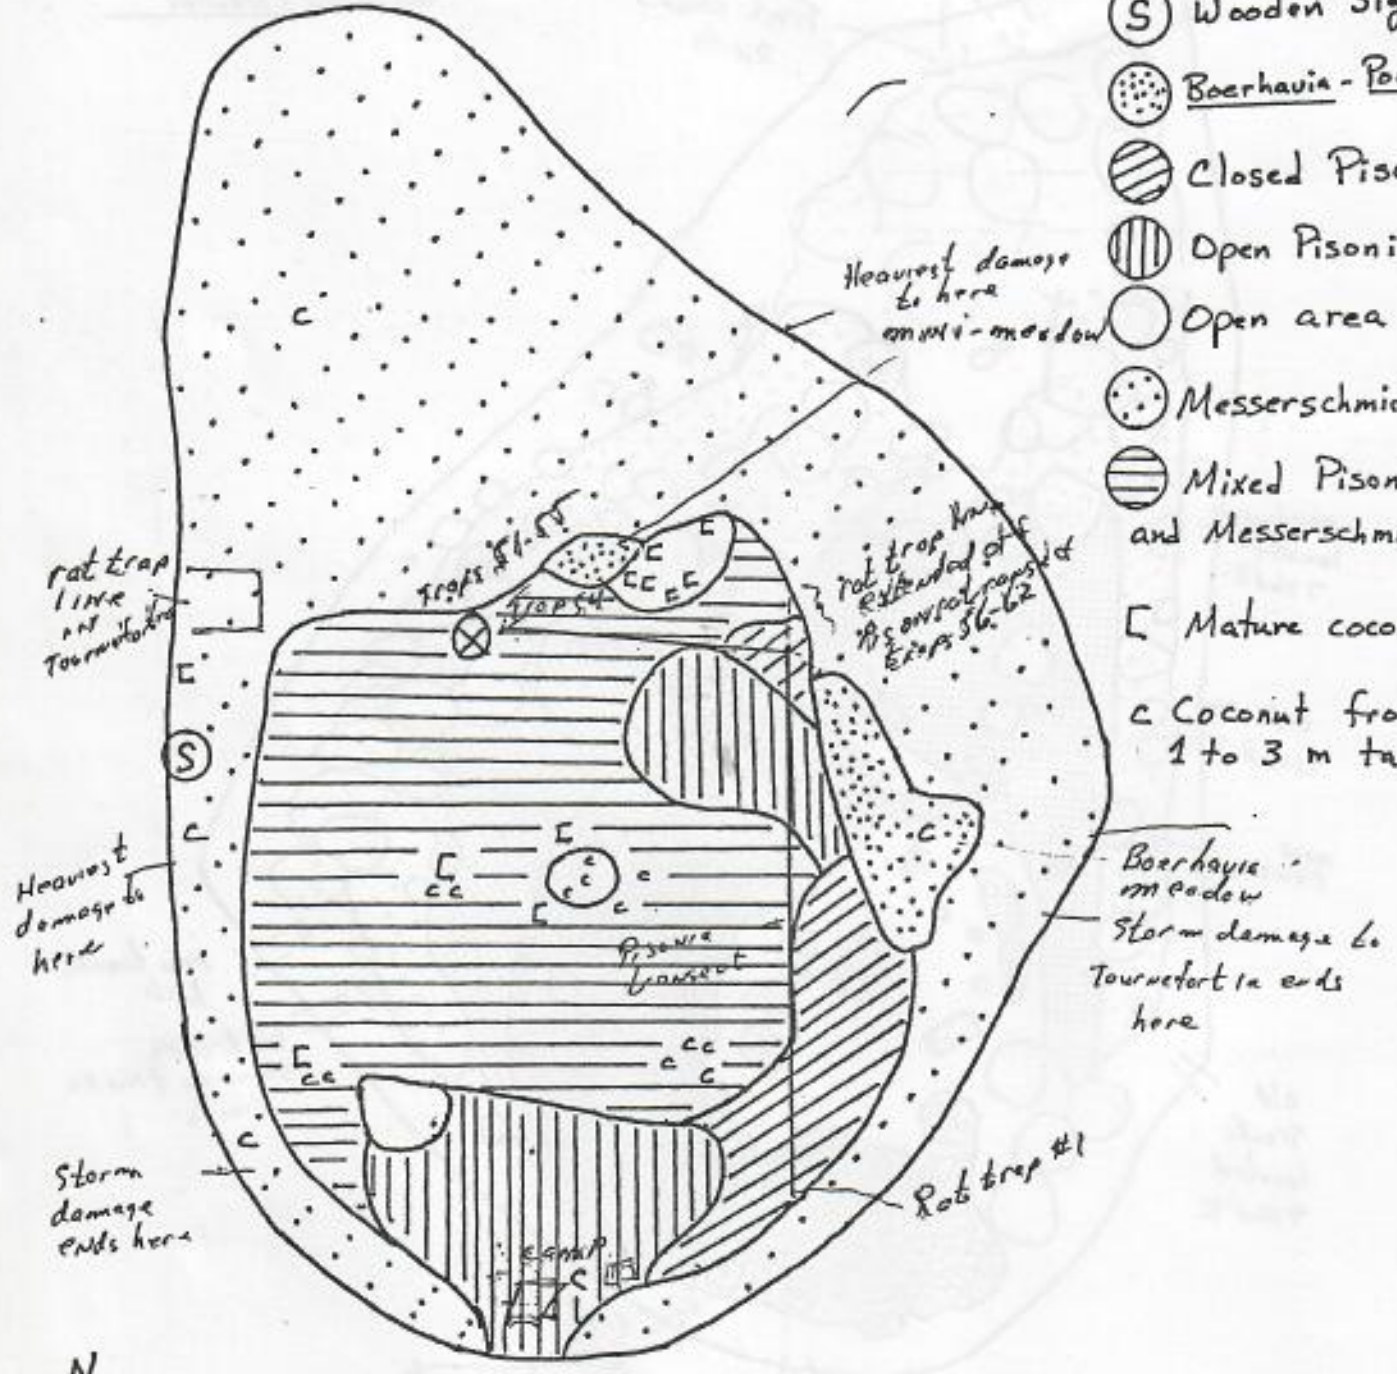 S Wooden Sig
Boerhavia - Po
Closed Piso
Open Pisoni
Open area
Messerschmid
Mixed Pison
and Messerschm
[ Mature coco
c Coconut fro
1 to 3 m ta
Heaviest damage
to here
mini-meadow
Traps 51-55
Trap 54
rat trap line
extended off
Pisonia transect
traps 56-62
rat trap
line
in
Tournefortia
S
Heaviest
damage to
here
Pisonia
transect
Boerhavia
meadow
Storm damage to
Tournefortia ends
here
Storm
damage
ends here
Rat trap #1
camp
N